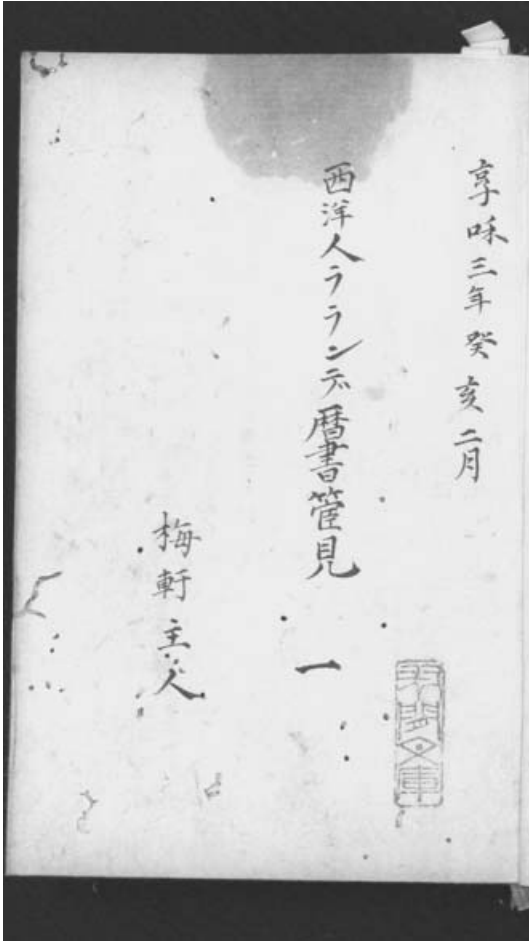 享和三年癸亥二月
西洋人ラランデ暦書管見 一
梅軒主人